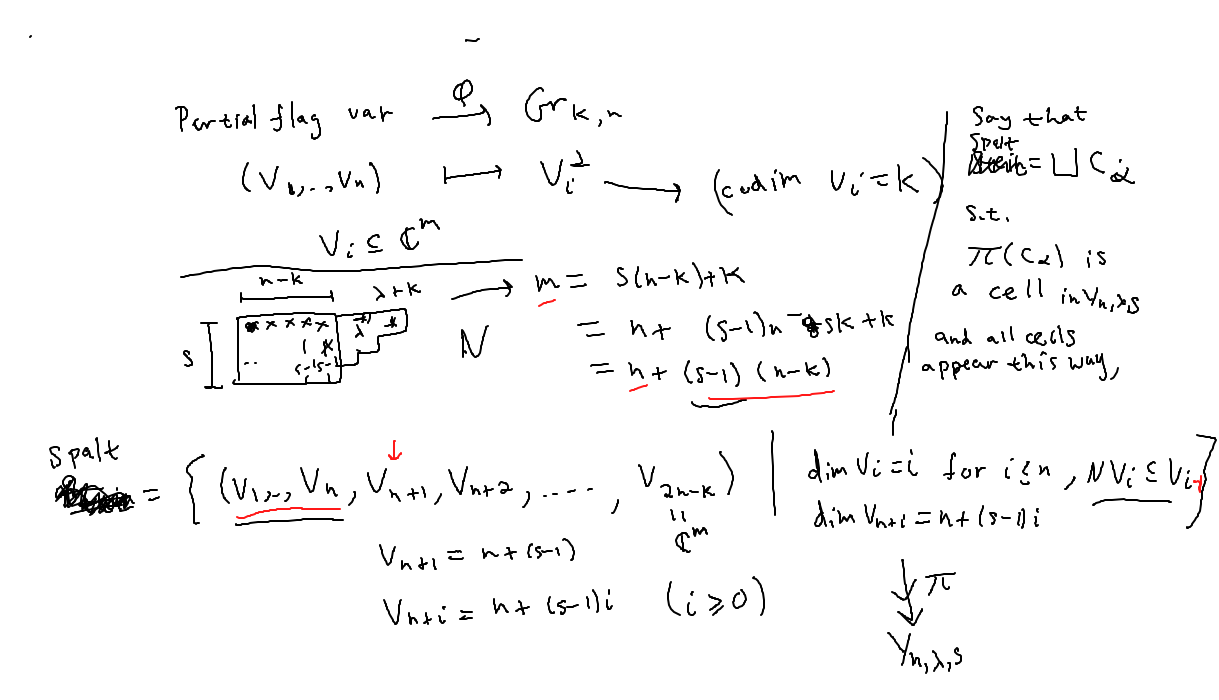 Partial flag var →^φ Gr_{k,n}
(V_1,.., V_n) ↦ V_i^⊥ → (codim V_i = k)
V_i ⊆ ℂ^m
n-k
λ+k
S
x x x x x
λ
s-1 s-1
N
→ m = s(n-k)+k
= n + (s-1)n - sk + k
= n + (s-1)(n-k)
Say that
Spalt = ⊔ C_α
s.t.
π(C_α) is
a cell in Y_{n,λ,s}
and all cells
appear this way,
Spalt = { (V_1,.., V_n, V_{n+1}, V_{n+2}, ...., V_{2n-k}) | dim V_i = i for i ≤ n, NV_i ⊆ V_{i-1}
dim V_{n+i} = n + (s-1)i }
=
ℂ^m
V_{n+1} = n + (s-1)
V_{n+i} = n + (s-1)i (i ≥ 0)
π
Y_{n,λ,s}